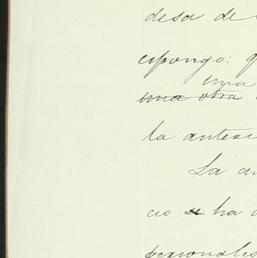 desa de
espongo: q
una otra
la anteri
La an
cio se ha d
personales